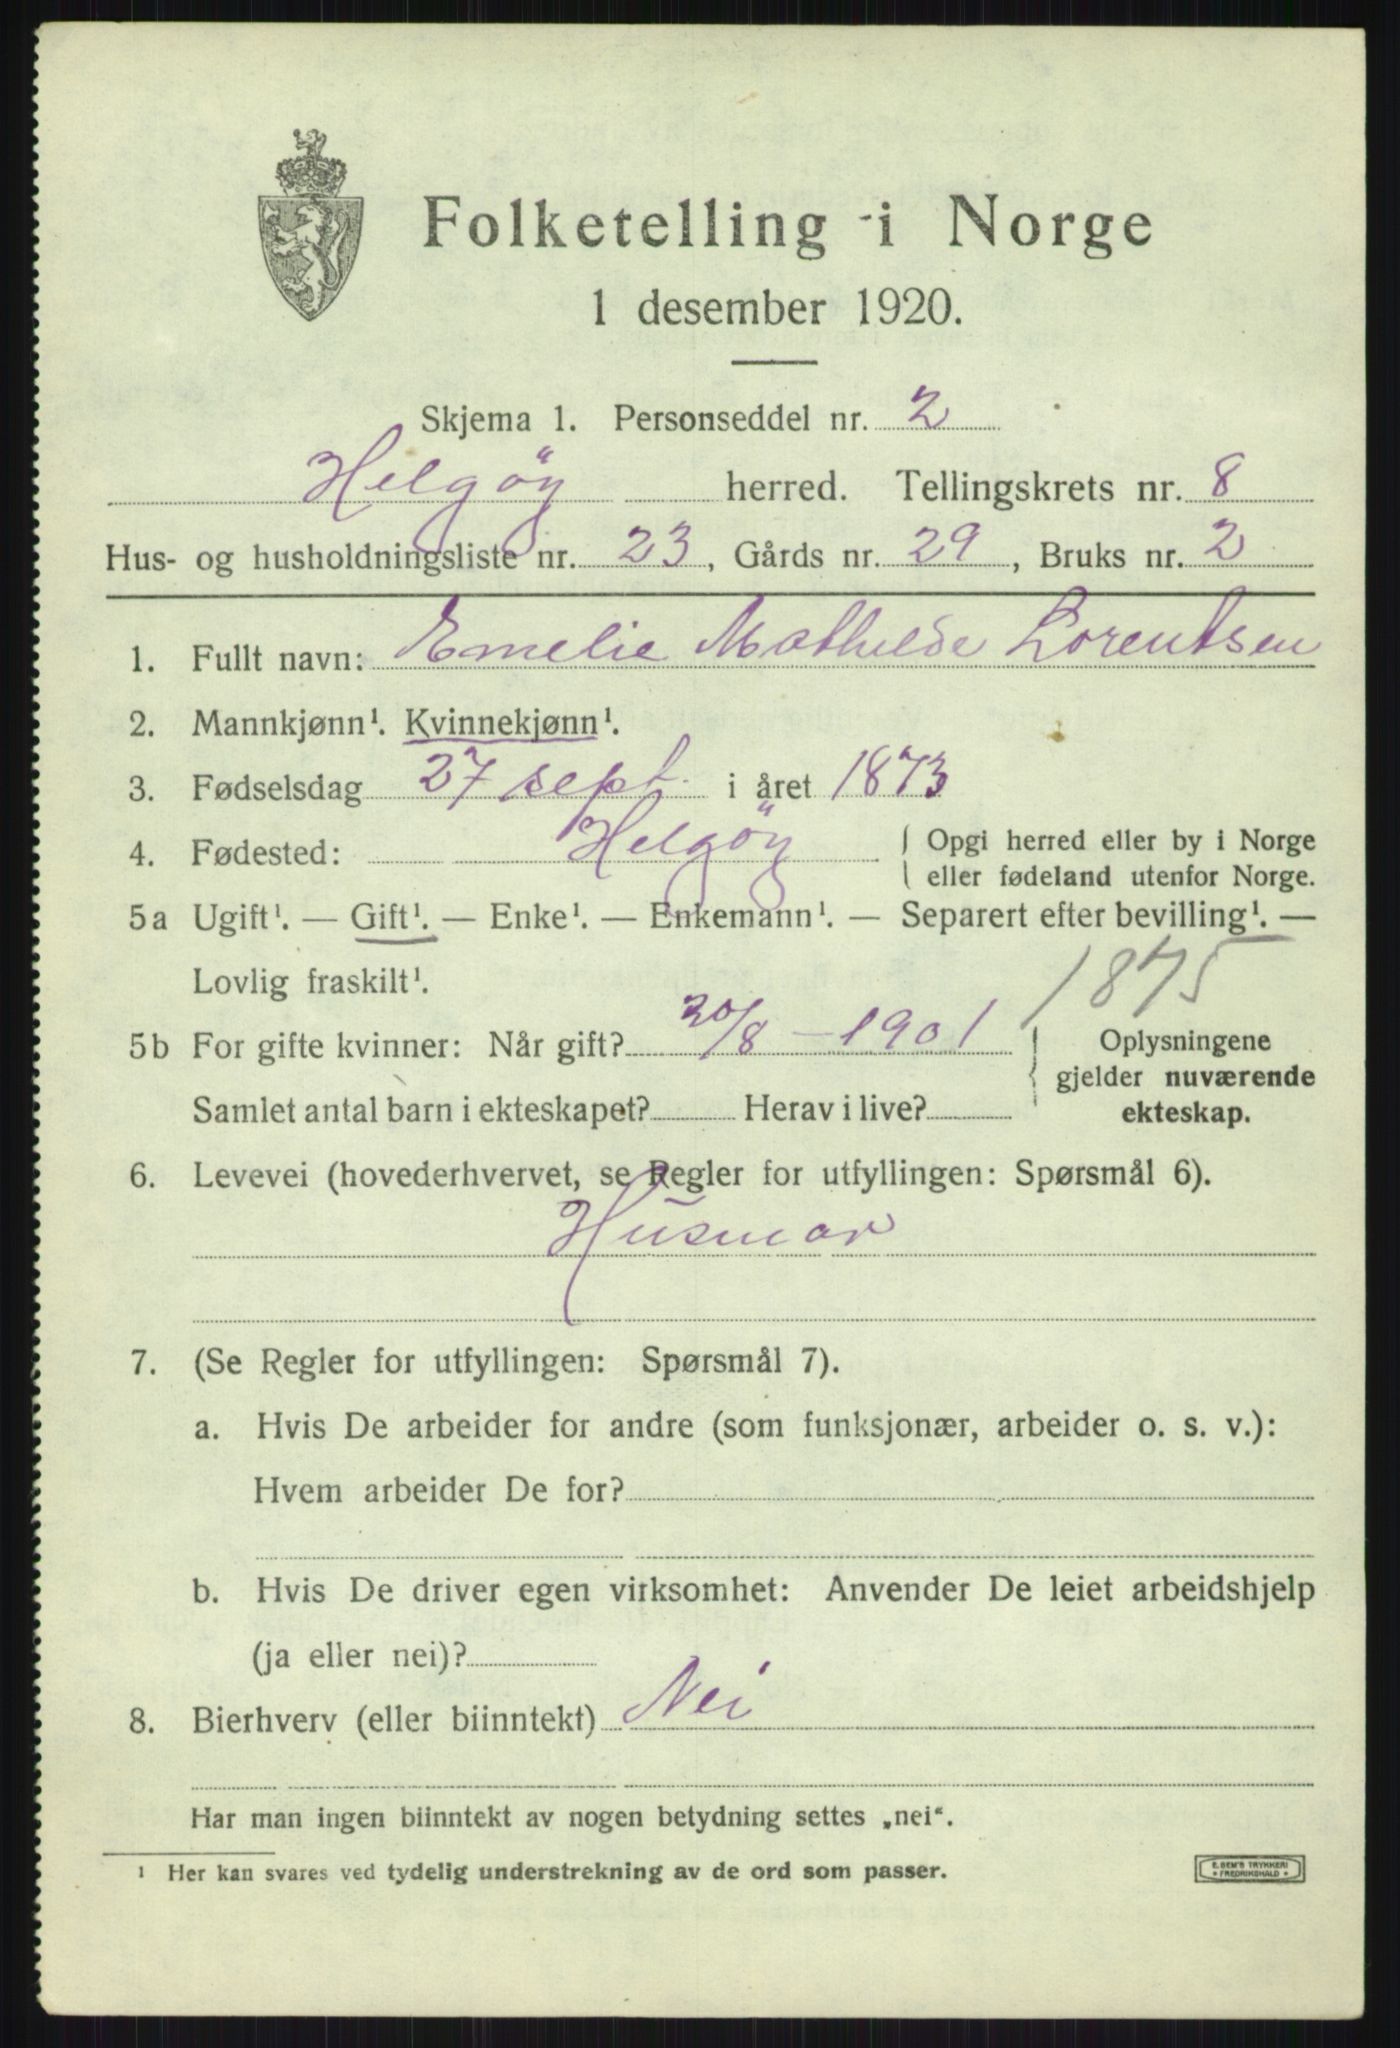 Folketelling i Norge
1 desember 1920.
Skjema 1. Personseddel nr. 2
Helgöy herred. Tellingskrets nr. 8
Hus- og husholdningsliste nr. 23, Gårds nr. 29, Bruks nr. 2
1. Fullt navn: Emelie Mathilde Lorentsen
2. Mannkjønn¹. Kvinnekjønn¹.
3. Fødselsdag 27 sept. i året 1873
4. Fødested: Helgöy { Opgi herred eller by i Norge
eller fødeland utenfor Norge.
5a Ugift¹. — Gift¹. — Enke¹. — Enkemann¹. — Separert efter bevilling¹. —
Lovlig fraskilt¹. 1875
5b For gifte kvinner: Når gift? 20/8 - 1901 { Oplysningene
gjelder nuværende
Samlet antal barn i ekteskapet? Herav i live? ekteskap.
6. Levevei (hovederhvervet, se Regler for utfyllingen: Spørsmål 6).
Husmor
7. (Se Regler for utfyllingen: Spørsmål 7).
a. Hvis De arbeider for andre (som funksjonær, arbeider o. s. v.):
Hvem arbeider De for?
b. Hvis De driver egen virksomhet: Anvender De leiet arbeidshjelp
(ja eller nei)?
8. Bierhverv (eller biinntekt) Nei
Har man ingen biinntekt av nogen betydning settes „nei“.
¹ Her kan svares ved tydelig understrekning av de ord som passer.
E. SEM'S TRYKKERI
• FREDRIKSHALD •